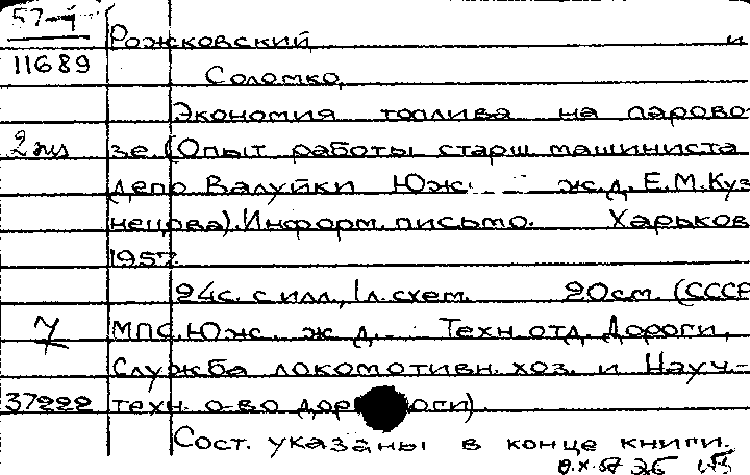 57-4
Рожковский и
11689
Соломко,
Экономия топлива на парово-
2 экз
зе. (Опыт работы старш машиниста
депо Валуйки Юж. ж.д. Е.М.Куз
нецова). Информ. письмо. Харьков
1957.
24с. с илл., 1л. схем. 20см. (СССР
7
МПС. Юж. ж д. Техн. отд. Дороги,
Служба локомотивн. хоз. и Науч.-
37222
техн. о-во дороги)
Сост. указаны в конце книги.